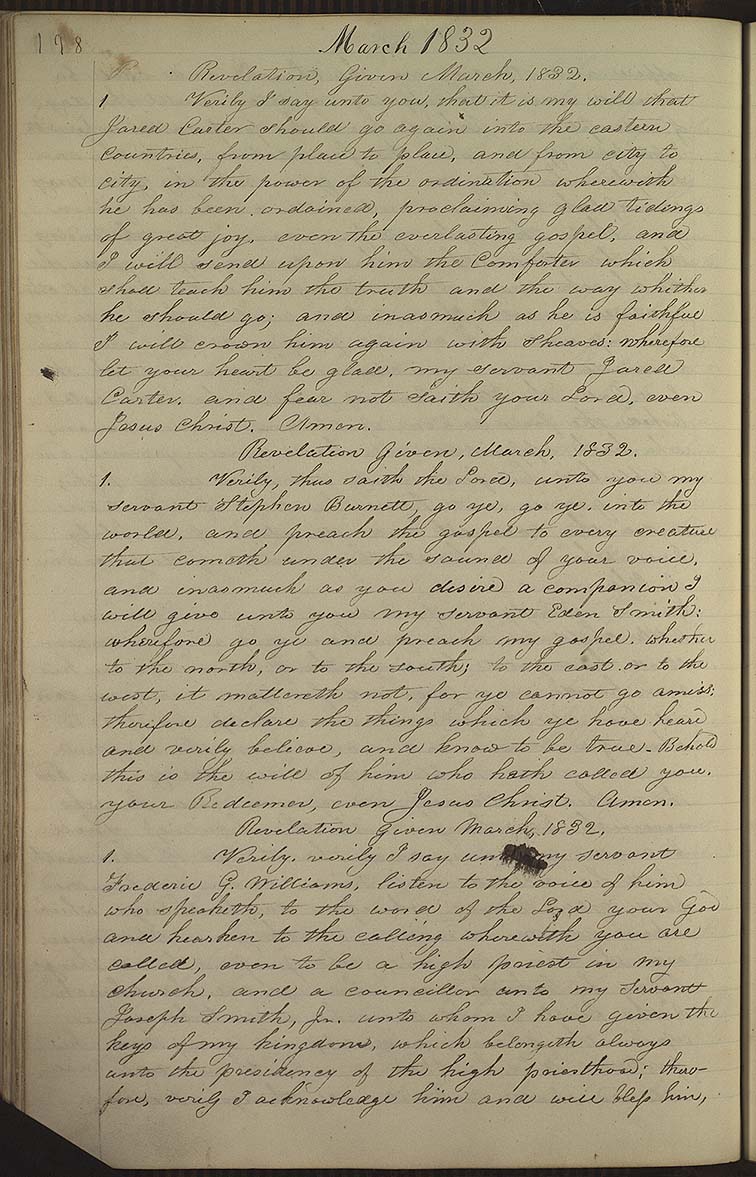 198 March 1832
Revelation, Given March, 1832.
1 Verily I say unto you, that it is my will that
Jared Carter should go again into the eastern
countries, from place to place, and from city to
city, in the power of the ordination wherewith
he has been ordained, proclaiming glad tidings
of great joy, even the everlasting gospel, and
I will send upon him the Comforter which
shall teach him the truth and the way whither
he should go; and inasmuch as he is faithful
I will crown him again with sheaves: wherefore
let your heart be glad, my servant Jared
Carter, and fear not saith your Lord, even
Jesus Christ. Amen.
Revelation Given, March, 1832.
1. Verily, thus saith the Lord, unto you my
servant Stephen Burnett, go ye, go ye, into the
world, and preach the gospel to every creature
that cometh under the sound of your voice,
and inasmuch as you desire a companion I
will give unto you my servant Eden Smith:
wherefore go ye and preach my gospel, whether
to the north, or to the south; to the east or to the
west, it mattereth not, for ye cannot go amiss;
therefore declare the things which ye have heard
and verily believe, and know to be true - Behold
this is the will of him who hath called you,
your Redeemer, even Jesus Christ. Amen.
Revelation Given March, 1832.
1. Verily, verily I say my servant
Frederic G. Williams, listen to the voice of him
who speaketh, to the word of the Lord your God
and hearken to the calling wherewith you are
called, even to be a high priest in my
church, and a councillor unto my servant
Joseph Smith, Jr. unto whom I have given the
keys of my kingdom, which belongeth always
unto the presidency of the high priesthood; there-
fore, verily I acknowledge him and will bless him,